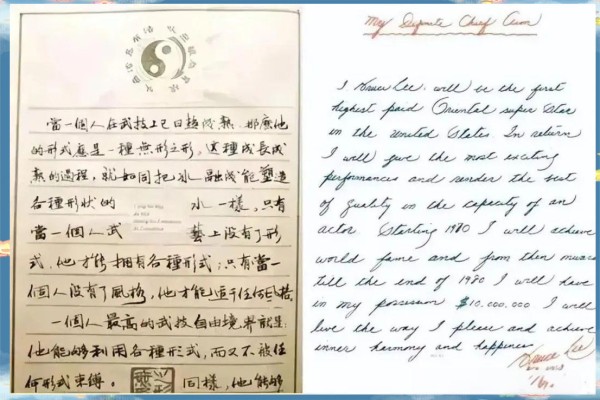 當一個人在武技上已日趨成熟，那麽他
的形式應是一種無形之形。這種成長成
熟的過程，就如同把冰融成能塑造
各種形狀的 水一樣，只有
當一個人武 藝上沒有了形
式，他才能擁有各種形式；只有當一
個人沒有了風格，他才能適于任何風格。
一個人最高的武技自由境界就是：
他能够利用各種形式，而又不被任
何形式束縛。 同樣，他能够
My Definite Chief Aim
I, Bruce Lee, will be the first
highest paid Oriental super Star
in the United States. In return
I will give the most exciting
performances and render the best
of quality in the capacity of an
actor. Starting 1970 I will achieve
world fame and from then onward
till the end of 1980 I will have
in my possession $10,000,000. I will
live the way I please and achieve
inner harmony and happiness
Bruce Lee